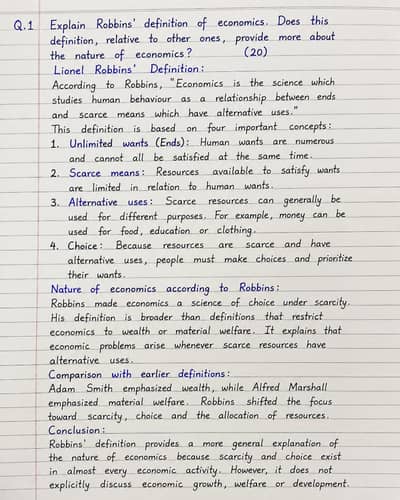 Q.1 Explain Robbins' definition of economics. Does this
definition, relative to other ones, provide more about
the nature of economics? (20)
Lionel Robbins' Definition:
According to Robbins, "Economics is the science which
studies human behaviour as a relationship between ends
and scarce means which have alternative uses."
This definition is based on four important concepts:
1. Unlimited wants (Ends): Human wants are numerous
and cannot all be satisfied at the same time.
2. Scarce means: Resources available to satisfy wants
are limited in relation to human wants.
3. Alternative uses: Scarce resources can generally be
used for different purposes. For example, money can be
used for food, education or clothing.
4. Choice: Because resources are scarce and have
alternative uses, people must make choices and prioritize
their wants.
Nature of economics according to Robbins:
Robbins made economics a science of choice under scarcity.
His definition is broader than definitions that restrict
economics to wealth or material welfare. It explains that
economic problems arise whenever scarce resources have
alternative uses.
Comparison with earlier definitions:
Adam Smith emphasized wealth, while Alfred Marshall
emphasized material welfare. Robbins shifted the focus
toward scarcity, choice and the allocation of resources.
Conclusion:
Robbins' definition provides a more general explanation of
the nature of economics because scarcity and choice exist
in almost every economic activity. However, it does not
explicitly discuss economic growth, welfare or development.